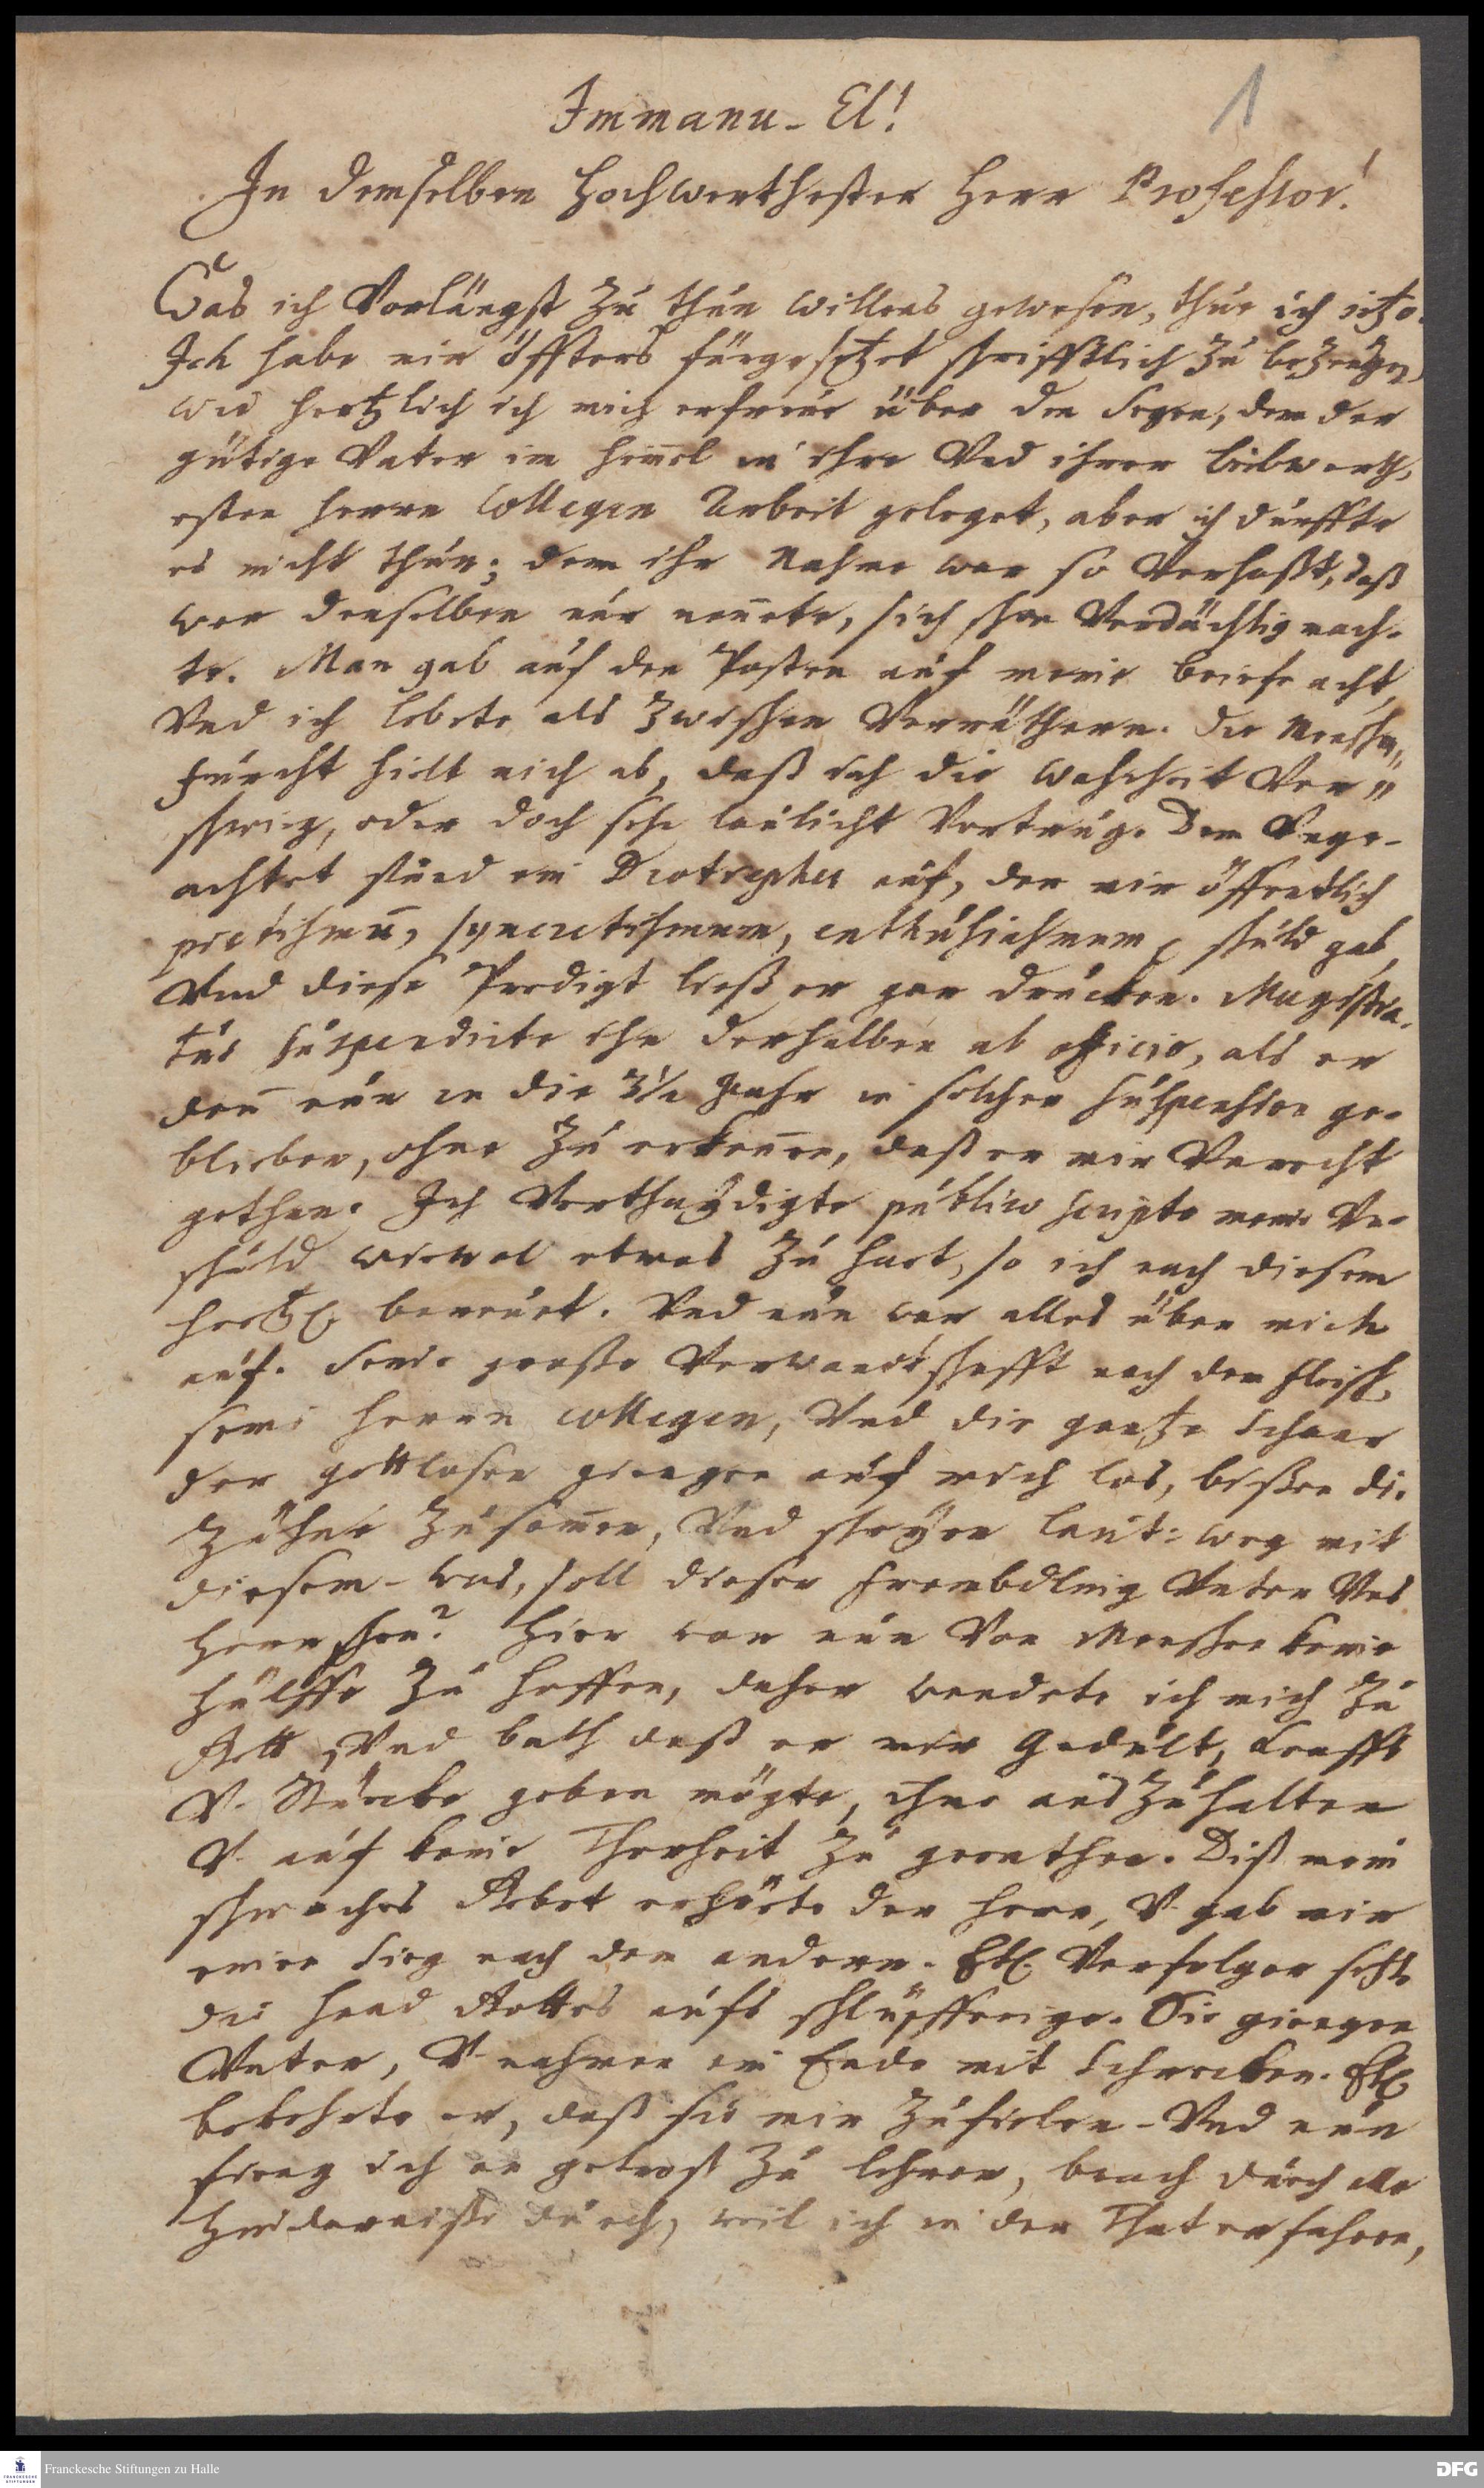 1
Immanu-El!
In demselben Hochwerthester Herr Professor!
Was ich Vorlängst zu thun willens gewesen, thue ich jetzo.
Ich habe mir öffters fürgesetzet schrifftlich zu bezeugen,
wie hertzlich ich mich erfreue über den Segen, den der
gütige Vater im him̅el in ihre Vnd ihrer liebwerth,
esten herrn Collegen Arbeit geleget, aber ich durffte
es nicht thun; denn ihr Nahme war so Verhaßt, daß
wer denselben nur nen̅ete, sich schon Verdächtig mach-
te. Man gab auf den Posten auf meine briefe acht,
Vnd ich lebete als zwischen Verräthern. Die Menschen,,
furcht hielt mich ab, daß ich die wahrheit Ver,,
schwieg, oder doch sehr laulicht Vortrug. Dem Vnge-
achtet stund ein Diotrephes auf, der mir öffentlich
pietismu̅, syncretismum, enthusiasmum schuld gab,
Vnd diese Predigt ließ er gar drucken. Magistra-
tus suspendirte ihn deßhalben ab officio, als er
den̅ nun in die 3½ Jahr in solcher suspension ge-
blieben, ohne zu erken̅en, daß er mir Vnrecht
gethan. Ich Vertheydigte publico scripto meine Vn-
schuld wiewol etwas zu hart, so ich nach diesem
hertzl. bereuet. Vnd nun war alles über mich
auf. Seine große Verwandschafft nach dem fleisch,
seine herrn Collegen, Vnd die gantze Schaar
der gottlosen giengen auf mich los, bißen die
Zähne zusam̅en, Vnd schryen laut: weg mit
diesem - was, soll dieser frembdling Vnter Vns
herrschen? Hier war nun Von Menschen keine
hülffe zu hoffen, daher wendete ich mich zu
Gott, Vnd bath daß er mir Gedult, Krafft
V. Stärcke geben mögte, ohne auszuhalten
V. auf keine Thorheit zu gerathen. Diß mein
schwaches Gebet erhörte der Herr, V. gab mir
einen Sieg nach dem andern. Etl. Verfolger setzte
die hand Gottes aufs schlüpfferige. Sie giengen
Vnter, V. nahmen ein Ende mit Schrecken. Etl.
bekehrte er, daß sie mir zufielen. Vnd nun
fieng ich an getrost zu lehren, brach durch alle
Hinderniße durch, weil ich in der That erfahren,
Franckesche Stiftungen zu Halle
FRANCKESCHE STIFTUNGEN
DFG